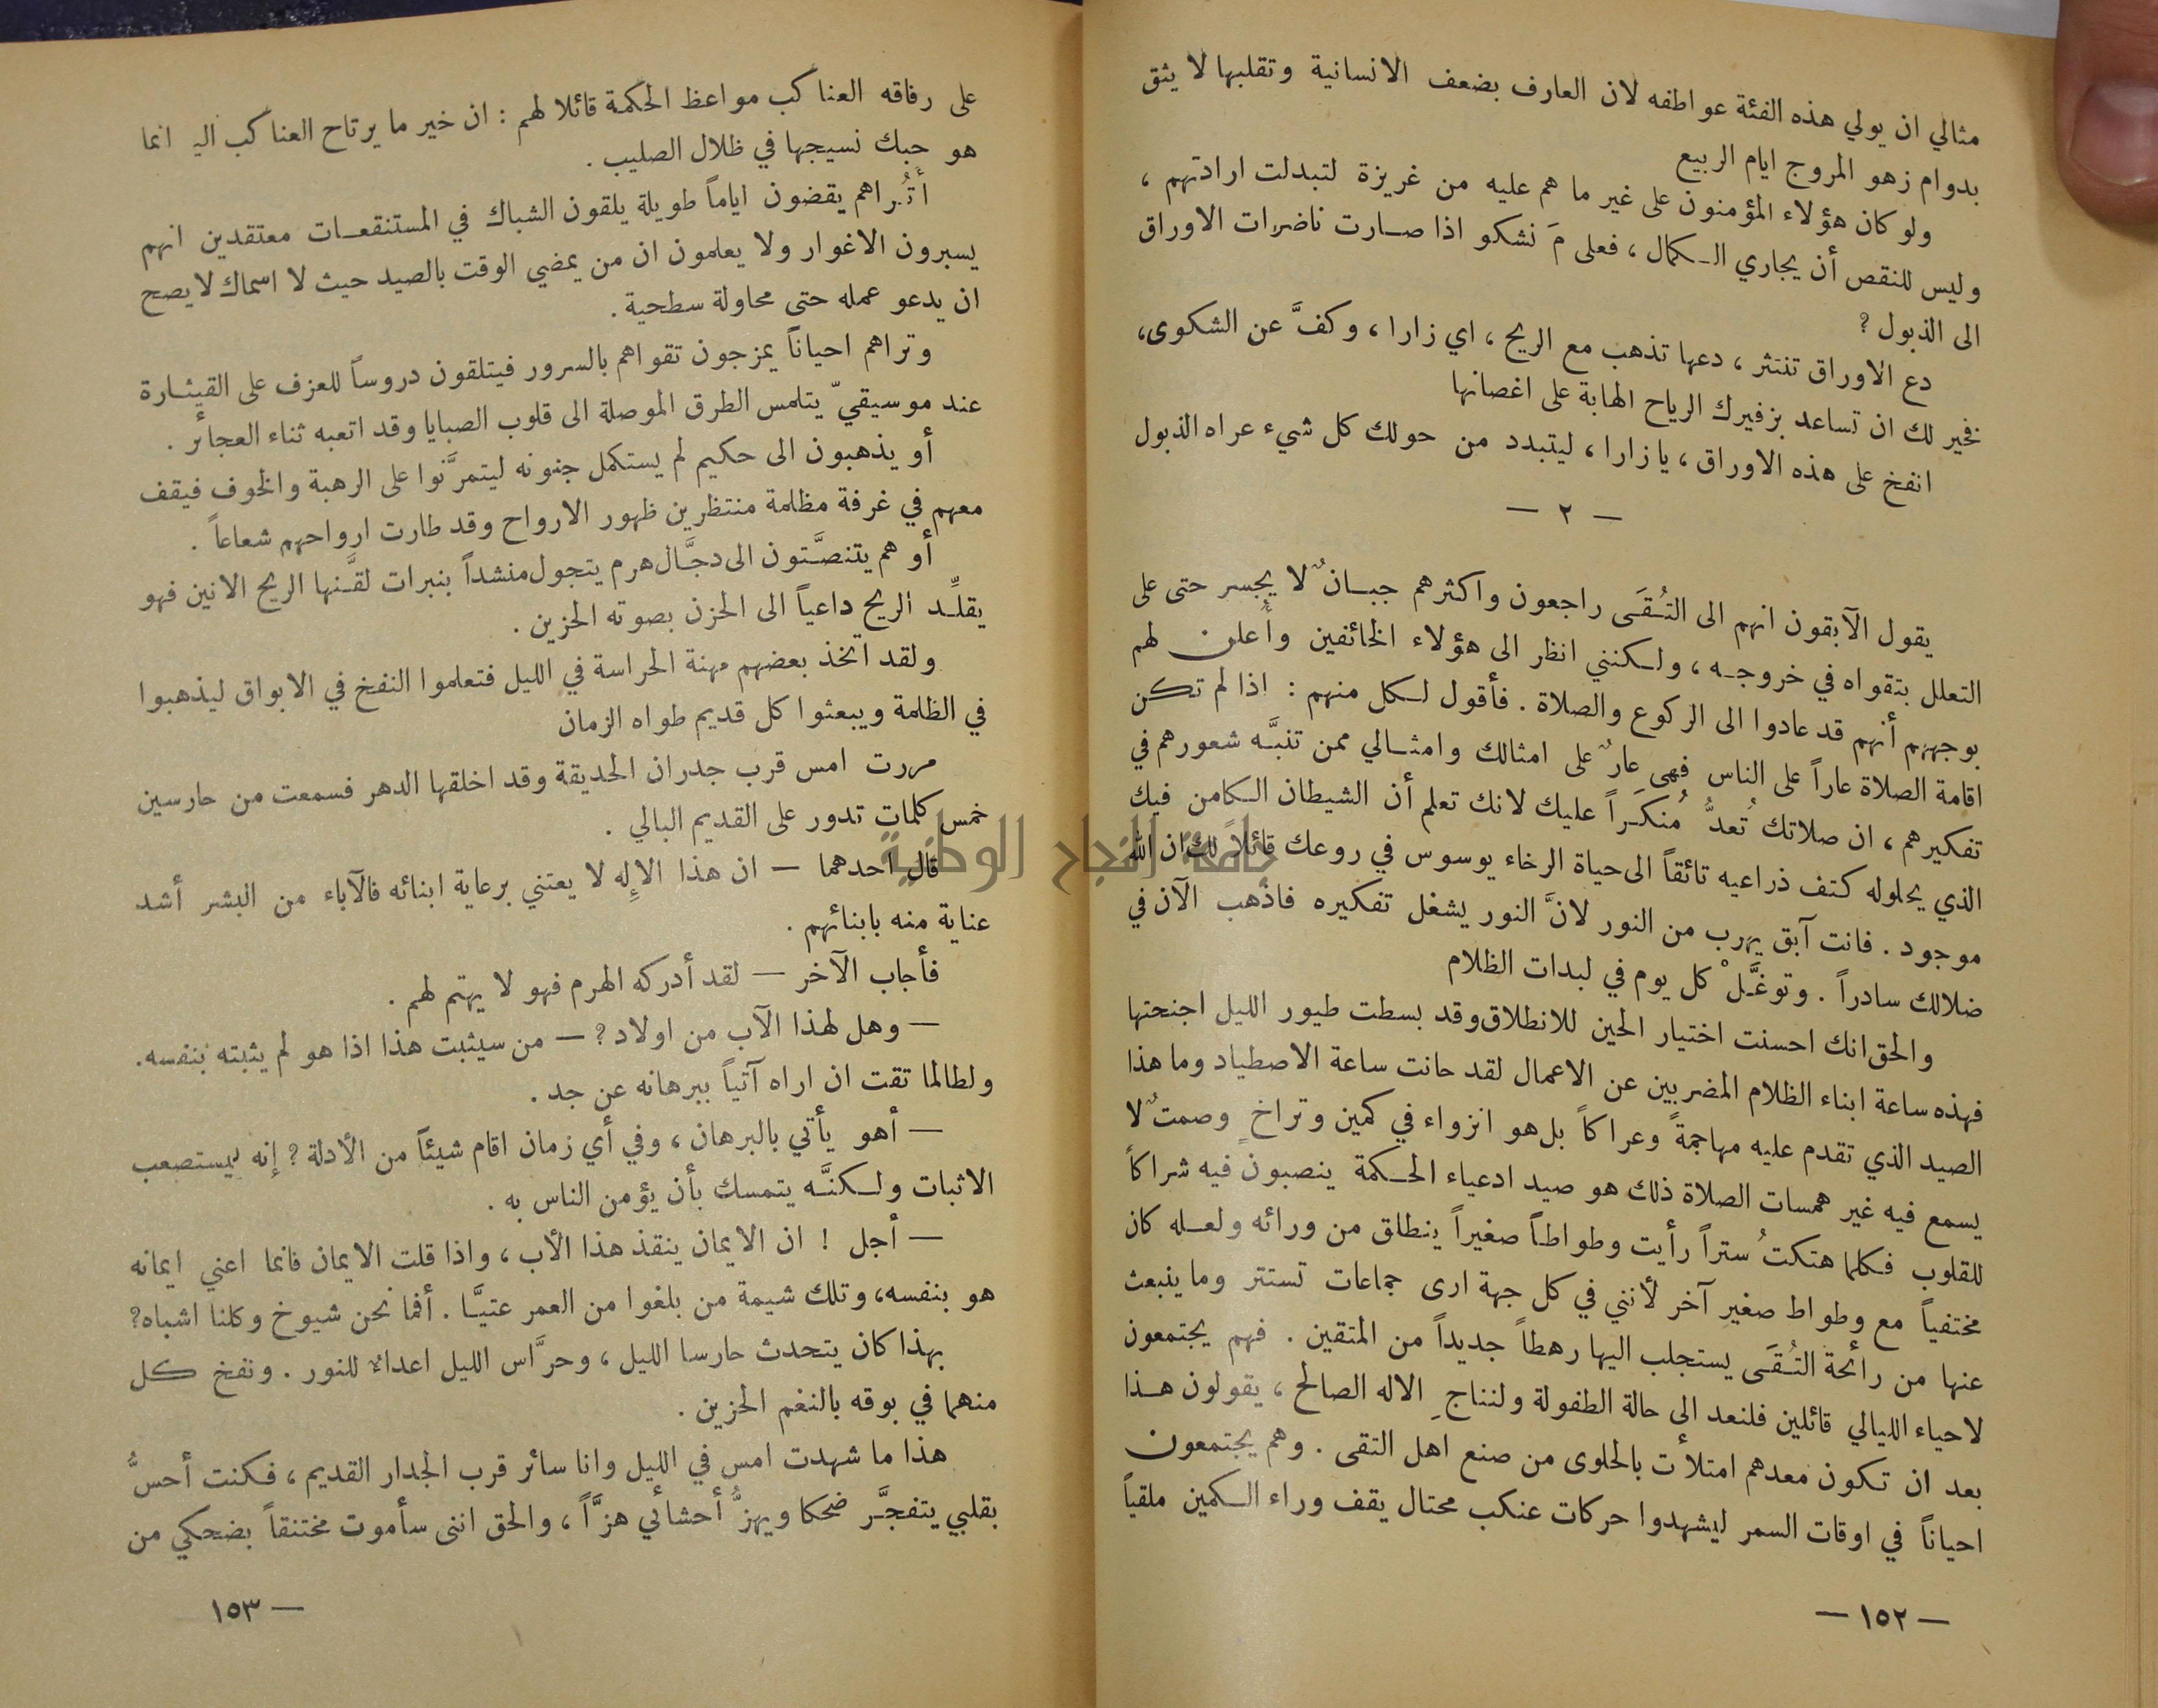 مثالي ان يولي هذه الفئة عواطفه لان العارف بضعف الانسانية وتقلبها لا يثق
بدوام زهو المروج ايام الربيع
ولو كان هؤلاء المؤمنون على غير ما هم عليه من غريزة لتبدلت ارادتهم ،
وليس للنقص أن يجاري الكمال ، فعلى مَ نشكو اذا صارت ناضرات الاوراق
الى الذبول ؟
دع الاوراق تنتثر ، دعها تذهب مع الريح ، اي زارا ، وكفَّ عن الشكوى،
فخير لك ان تساعد بزفيرك الرياح الهابة على اغصانها
انفخ على هذه الاوراق ، يا زارا ، ليتبدد من حولك كل شيء عراه الذبول
— ٢ —
يقول الآبقون انهم الى التُقَى راجعون واكثرهم جبانٌ لا يجسر حتى على
التعلل بتقواه في خروجه ، ولكنني انظر الى هؤلاء الخائفين وأعلن لهم
بوجههم أنهم قد عادوا الى الركوع والصلاة . فأقول لكل منهم : اذا لم تكن
اقامة الصلاة عاراً على الناس فهي عارٌ على امثالك وامثالي ممن تنبَّه شعورهم في
تفكيرهم ، ان صلاتك تُعدُّ مُنكَراً عليك لانك تعلم أن الشيطان الكامن فيك
الذي يحلوله كتف ذراعيه تائقاً الى حياة الرخاء يوسوس في روعك قائلاً لك ان الله
موجود . فانت آبق يهرب من النور لانَّ النور يشغل تفكيره فاذهب الآن في
ضلالك سادراً . وتوغَّلْ كل يوم في لبدات الظلام
والحق انك احسنت اختيار الحين للانطلاق وقد بسطت طيور الليل اجنحتها
فهذه ساعة ابناء الظلام المضربين عن الاعمال لقد حانت ساعة الاصطياد وما هذا
الصيد الذي تقدم عليه مهاجمةً وعراكاً بل هو انزواء في كمين وتراخٍ وصمتٌ لا
يسمع فيه غير همسات الصلاة ذلك هو صيد ادعياء الحكمة ينصبون فيه شراكاً
للقلوب فكلما هتكتُ ستراً رأيت وطواطاً صغيراً ينطلق من ورائه ولعله كان
مختفياً مع وطواط صغير آخر لأنني في كل جهة ارى جماعات تستتر وما ينبعث
عنها من رائحة التُقَى يستجلب اليها رهطاً جديداً من المتقين . فهم يجتمعون
لاحياء الليالي قائلين فلنعد الى حالة الطفولة ولنناجِ الاله الصالح ، يقولون هذا
بعد ان تكون معدهم امتلأت بالحلوى من صنع اهل التقى . وهم يجتمعون
احياناً في اوقات السمر ليشهدوا حركات عنكب محتال يقف وراء الكمين ملقياً
— ١٥٢ —
على رفاقه العناكب مواعظ الحكمة قائلا لهم : ان خير ما يرتاح العناكب اليه انما
هو حبك نسيجها في ظلال الصليب .
أتُراهم يقضون اياماً طويلة يلقون الشباك في المستنقعات معتقدين انهم
يسبرون الاغوار ولا يعلمون ان من يمضي الوقت بالصيد حيث لا اسماك لا يصح
ان يدعو عمله حتى محاولة سطحية .
وتراهم احياناً يمزجون تقواهم بالسرور فيتلقون دروساً للعزف على القيثارة
عند موسيقيّ يتلمس الطرق الموصلة الى قلوب الصبايا وقد اتعبه ثناء العجائز .
أو يذهبون الى حكيم لم يستكمل جنونه ليتمرَّنوا على الرهبة والخوف فيقف
معهم في غرفة مظلمة منتظرين ظهور الارواح وقد طارت ارواحهم شعاعاً .
أو هم يتنصَّتون الى دجَّال هرم يتجول منشداً بنبرات لقَّنها الريح الانين فهو
يقلِّد الريح داعياً الى الحزن بصوته الحزين .
ولقد اتخذ بعضهم مهنة الحراسة في الليل فتعلموا النفخ في الابواق ليذهبوا
في الظلمة ويبعثوا كل قديم طواه الزمان
مررت امس قرب جدران الحديقة وقد اخلقها الدهر فسمعت من حارسين
خمس كلمات تدور على القديم البالي .
قال احدهما — ان هذا الإله لا يعتني برعاية ابنائه فالآباء من البشر أشد
عناية منه بابنائهم .
فأجاب الآخر — لقد أدركه الهرم فهو لا يهتم لهم .
— وهل لهذا الآب من اولاد ؟ — من سيثبت هذا اذا هو لم يثبته بنفسه.
ولطالما تقت ان اراه آتياً ببرهانه عن جد .
— أهو يأتي بالبرهان ، وفي أي زمان اقام شيئاً من الأدلة ؟ إنه ليستصعب
الاثبات ولكنَّه يتمسك بأن يؤمن الناس به .
— أجل ! ان الايمان ينقذ هذا الأب ، واذا قلت الايمان فانما اعني ايمانه
هو بنفسه، وتلك شيمة من بلغوا من العمر عتيَّا . أفما نحن شيوخ وكلنا اشباه؟
بهذا كان يتحدث حارسا الليل ، وحرَّاس الليل اعداء للنور . ونفخ كل
منهما في بوقه بالنغم الحزين .
هذا ما شهدت امس في الليل وانا سائر قرب الجدار القديم ، فكنت أحسُّ
بقلبي يتفجَّر ضحكا ويهزُّ أحشائي هزَّاً ، والحق اننى سأموت مختنقاً بضحكي من
— ١٥٣
جامعة النجاح الوطنية